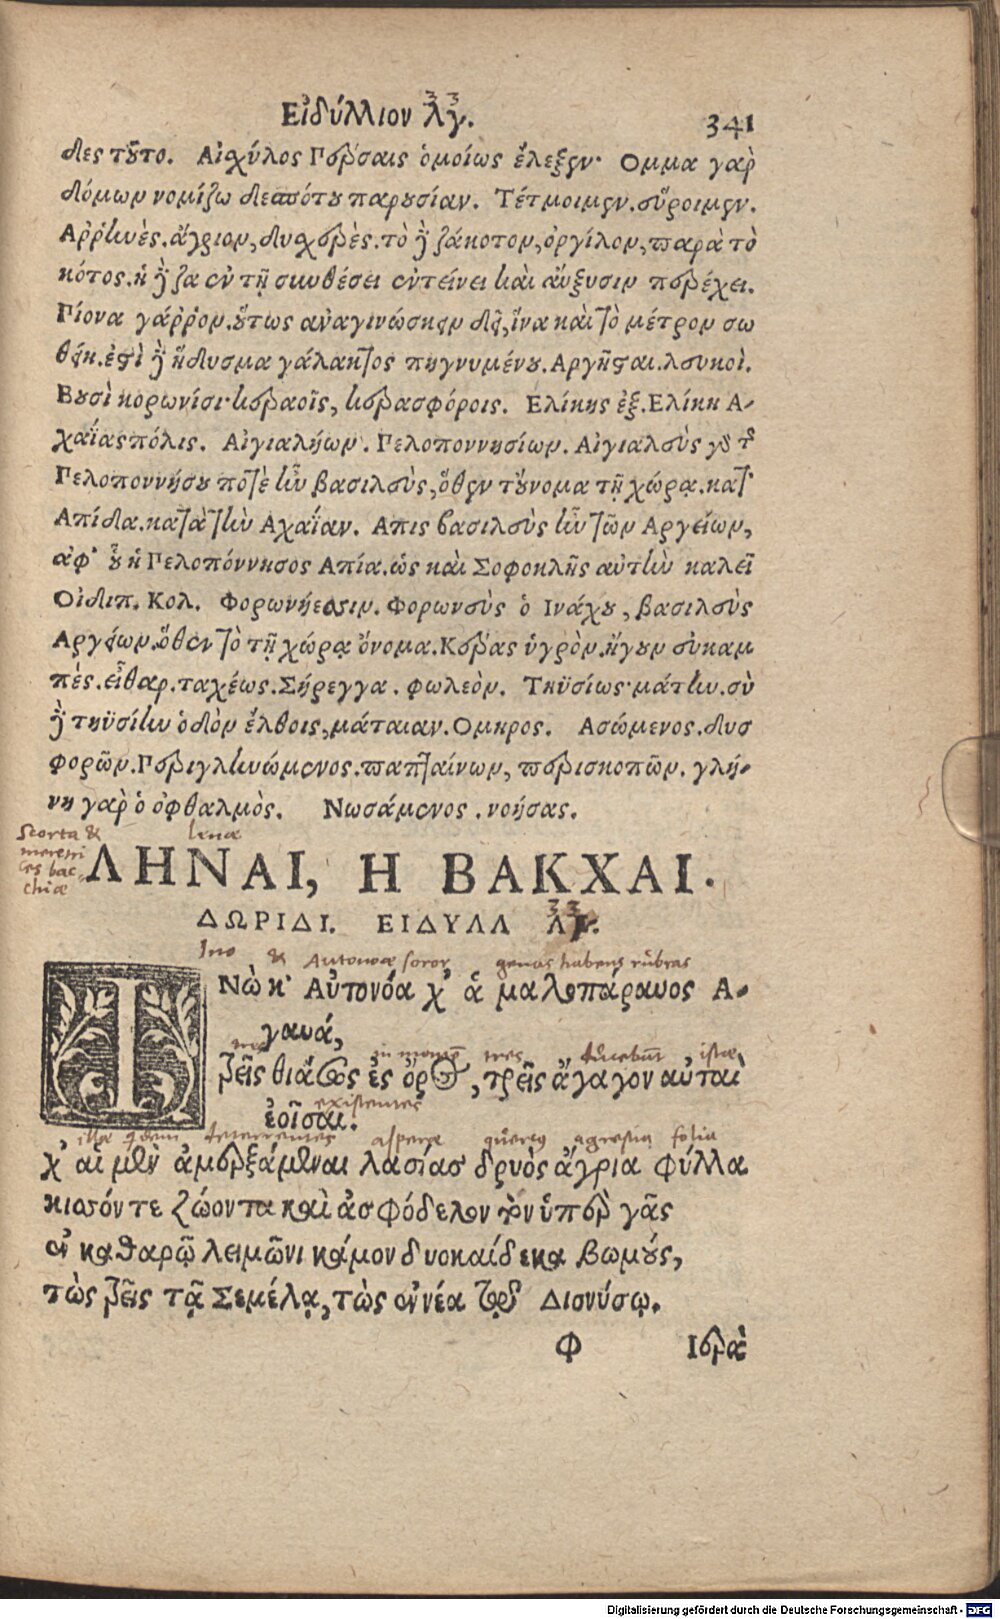 Εἰδύλλιον λγ. 341
δες τοῦτο. Αἰσχύλος Πέρσαις ὁμοίως ἔλεξεν· Ομμα γὰρ
δόμων νομίζω δεσπότου παρουσίαν. Τέτμοιμεν. εὕροιμεν.
Αῤῥηνὲς. ἄγριον, δυσχερὲς. τὸ ἢ ζάκοτον, ὀργίλον, παρὰ τὸ
κότος. ἡ ἢ ζα ἐν τῇ συνθέσει ἐντείνει καὶ αὔξησιν περέχει.
Πίονα γάῤῥον. οὕτως ἀναγινώσκειν δεῖ, ἵνα καὶ τὸ μέτρον σω
θείη. ἐστὶ ἢ ἥδυσμα γάλακτος πηγνυμένου. Αργησται. λευκοὶ.
Βουσὶ κορωνίσι· κεραοῖς, κερασφόροις. Ελίκης ἐξ. Ελίκη Α-
χαΐας πόλις. Αἰγιαλήων. Πελοποννησίων. Αἰγιαλεὺς γδ τῆς
Πελοποννήσου ποτὲ ἦν βασιλεὺς, ὅθεν τοὔνομα τῇ χώρᾳ. κατ'
Απίδα. κατὰ τὴν Αχαΐαν. Απις βασιλεὺς ἦν τῶν Αργείων,
ἀφ' οὗ ἡ Πελοπόννησος Απία. ὡς καὶ Σοφοκλῆς αὐτὴν καλεῖ
Οἰδιπ. Κολ. Φορωνήεσσιν. Φορωνεὺς ὁ Ινάχου, βασιλεὺς
Αργείων. ὅθεν τὸ τῇ χώρᾳ ὄνομα. Κέρας ὑγρὸν. ἤγουν εὐκαμ
πές. εἶθαρ. ταχέως. Σήρεγγα. φωλεὸν. Τηϋσίως· μάτην. σὺ
ἢ τηϋσίην ὁδὸν ἔλθοις, μάταιαν. Ομηρος. Ασώμενος. δυσ
φορῶν. Περιγληνώμενος. παπταίνων, περισκοπῶν. γλή-
νη γὰρ ὁ ὀφθαλμὸς. Νωσάμενος. νοήσας.
Scorta &
meretri
ces bac-
chiæ
lenæ
ΛΗΝΑΙ, Η ΒΑΚΧΑΙ.
ΔΩΡΙΔΙ. ΕΙΔΥΛΛ ΛΔ.
Ino & Autonoæ soror genas habens rubras
ΙΝὼ κ' Αὐτονόα χ' ἁ μαλοπάραυος Α-
γαυά,
tres in montem tres ducebant istæ
Τρεῖς θιάσως ἐς ὄρος, τρεῖς ἄγαγον αὐταὶ
existentes
ἐοῖσαι.
illæ quidem deterrentes asperæ quercus agrestia folia
χ' αἱ μὲν ἀμερξάμεναι λασίας δρυὸς ἄγρια φύλλα
κισσόν τε ζώοντα καὶ ἀσφόδελον τὸν ὑπὲρ γᾶς
ἐν καθαρῷ λειμῶνι κάμον δυοκαίδεκα βωμούς,
τὼς τρεῖς τᾷ Σεμέλᾳ, τὼς ἐννέα τῷ Διονύσῳ.
Φ Ιερὰ
Digitalisierung gefördert durch die Deutsche Forschungsgemeinschaft - DFG